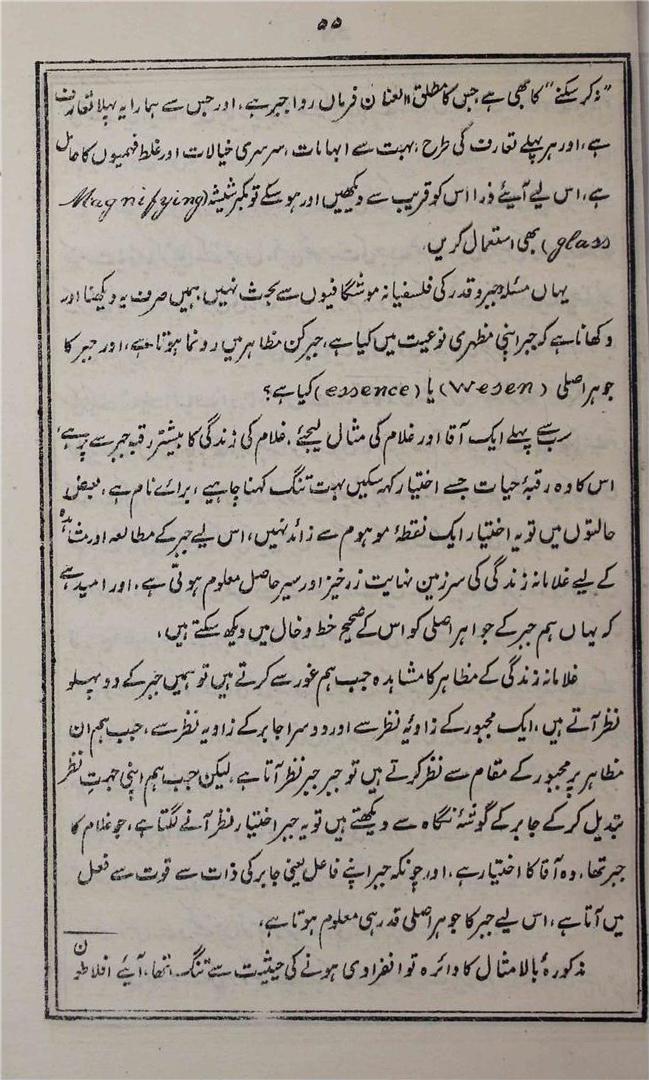 ۵۵
"نہ کر سکنے" کا بھی ہے جس کا مطلق العنان فرماں روا جبر ہے، اور جس سے ہمارا یہ پہلا تعارف
ہے، اور ہر پہلے تعارف کی طرح، بہت سے ابہامات، سرسری خیالات اور غلط فہمیوں کا حامل
ہے، اس لیے آئیے ذرا اس کو قریب سے دیکھیں اور ہو سکے تو مکبر شیشہ (Magnifying
glass) بھی استعمال کریں.
یہاں مسئلہ جبر و قدر کی فلسفیانہ موشگافیوں سے بحث نہیں، ہمیں صرف یہ دیکھنا اور
دکھانا ہے کہ جبر اپنی مظہری نوعیت میں کیا ہے، جبر کن مظاہر میں رونما ہوتا ہے، اور جبر کا
جوہر اصلی (Wesen) یا (essence) کیا ہے؟
سب سے پہلے ایک آقا اور غلام کی مثال لیجئے، غلام کی زندگی کا بیشتر رقبہ جبر سے پر ہے،
اس کا وہ رقبۂ حیات جسے اختیار کہہ سکیں بہت تنگ کہنا چاہیے، برائے نام ہے، بعض
حالتوں میں تو یہ اختیار ایک نقطۂ موہوم سے زائد نہیں، اس لیے جبر کے مطالعہ اور مشاہدہ
کے لیے غلامانہ زندگی کی سرزمین نہایت زرخیز اور سیر حاصل معلوم ہوتی ہے، اور امید ہے
کہ یہاں ہم جبر کے جواہر اصلی کو اس کے صحیح خط و خال میں دیکھ سکتے ہیں،
غلامانہ زندگی کے مظاہر کا مشاہدہ جب ہم غور سے کرتے ہیں تو ہمیں جبر کے دو پہلو
نظر آتے ہیں، ایک مجبور کے زاویۂ نظر سے اور دوسرا جابر کے زاویہ نظر سے، جب ہم ان
مظاہر پر مجبور کے مقام سے نظر کرتے ہیں تو جبر جبر نظر آتا ہے، لیکن جب ہم اپنی جہتِ نظر
تبدیل کر کے جابر کے گوشۂ نگاہ سے دیکھتے ہیں تو یہ جبر اختیار نظر آنے لگتا ہے، جو غلام کا
جبر تھا، وہ آقا کا اختیار ہے، اور چونکہ جبر اپنے فاعل یعنی جابر کی ذات سے قوت سے فعل
میں آتا ہے، اس لیے جبر کا جوہر اصلی قدر ہی معلوم ہوتا ہے،
مذکورۂ بالا مثال کا دائرہ تو انفرادی ہونے کی حیثیت سے تنگ تھا، آئیے افلاطون